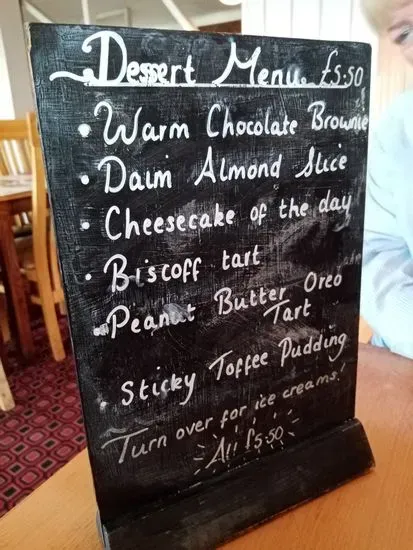 Dessert Menu £5.50
• Warm Chocolate Brownie
• Daim Almond Slice
• Cheesecake of the day
• Biscoff tart
• Peanut Butter Oreo
Tart
• Sticky Toffee Pudding
Turn over for ice creams!
All £5.50